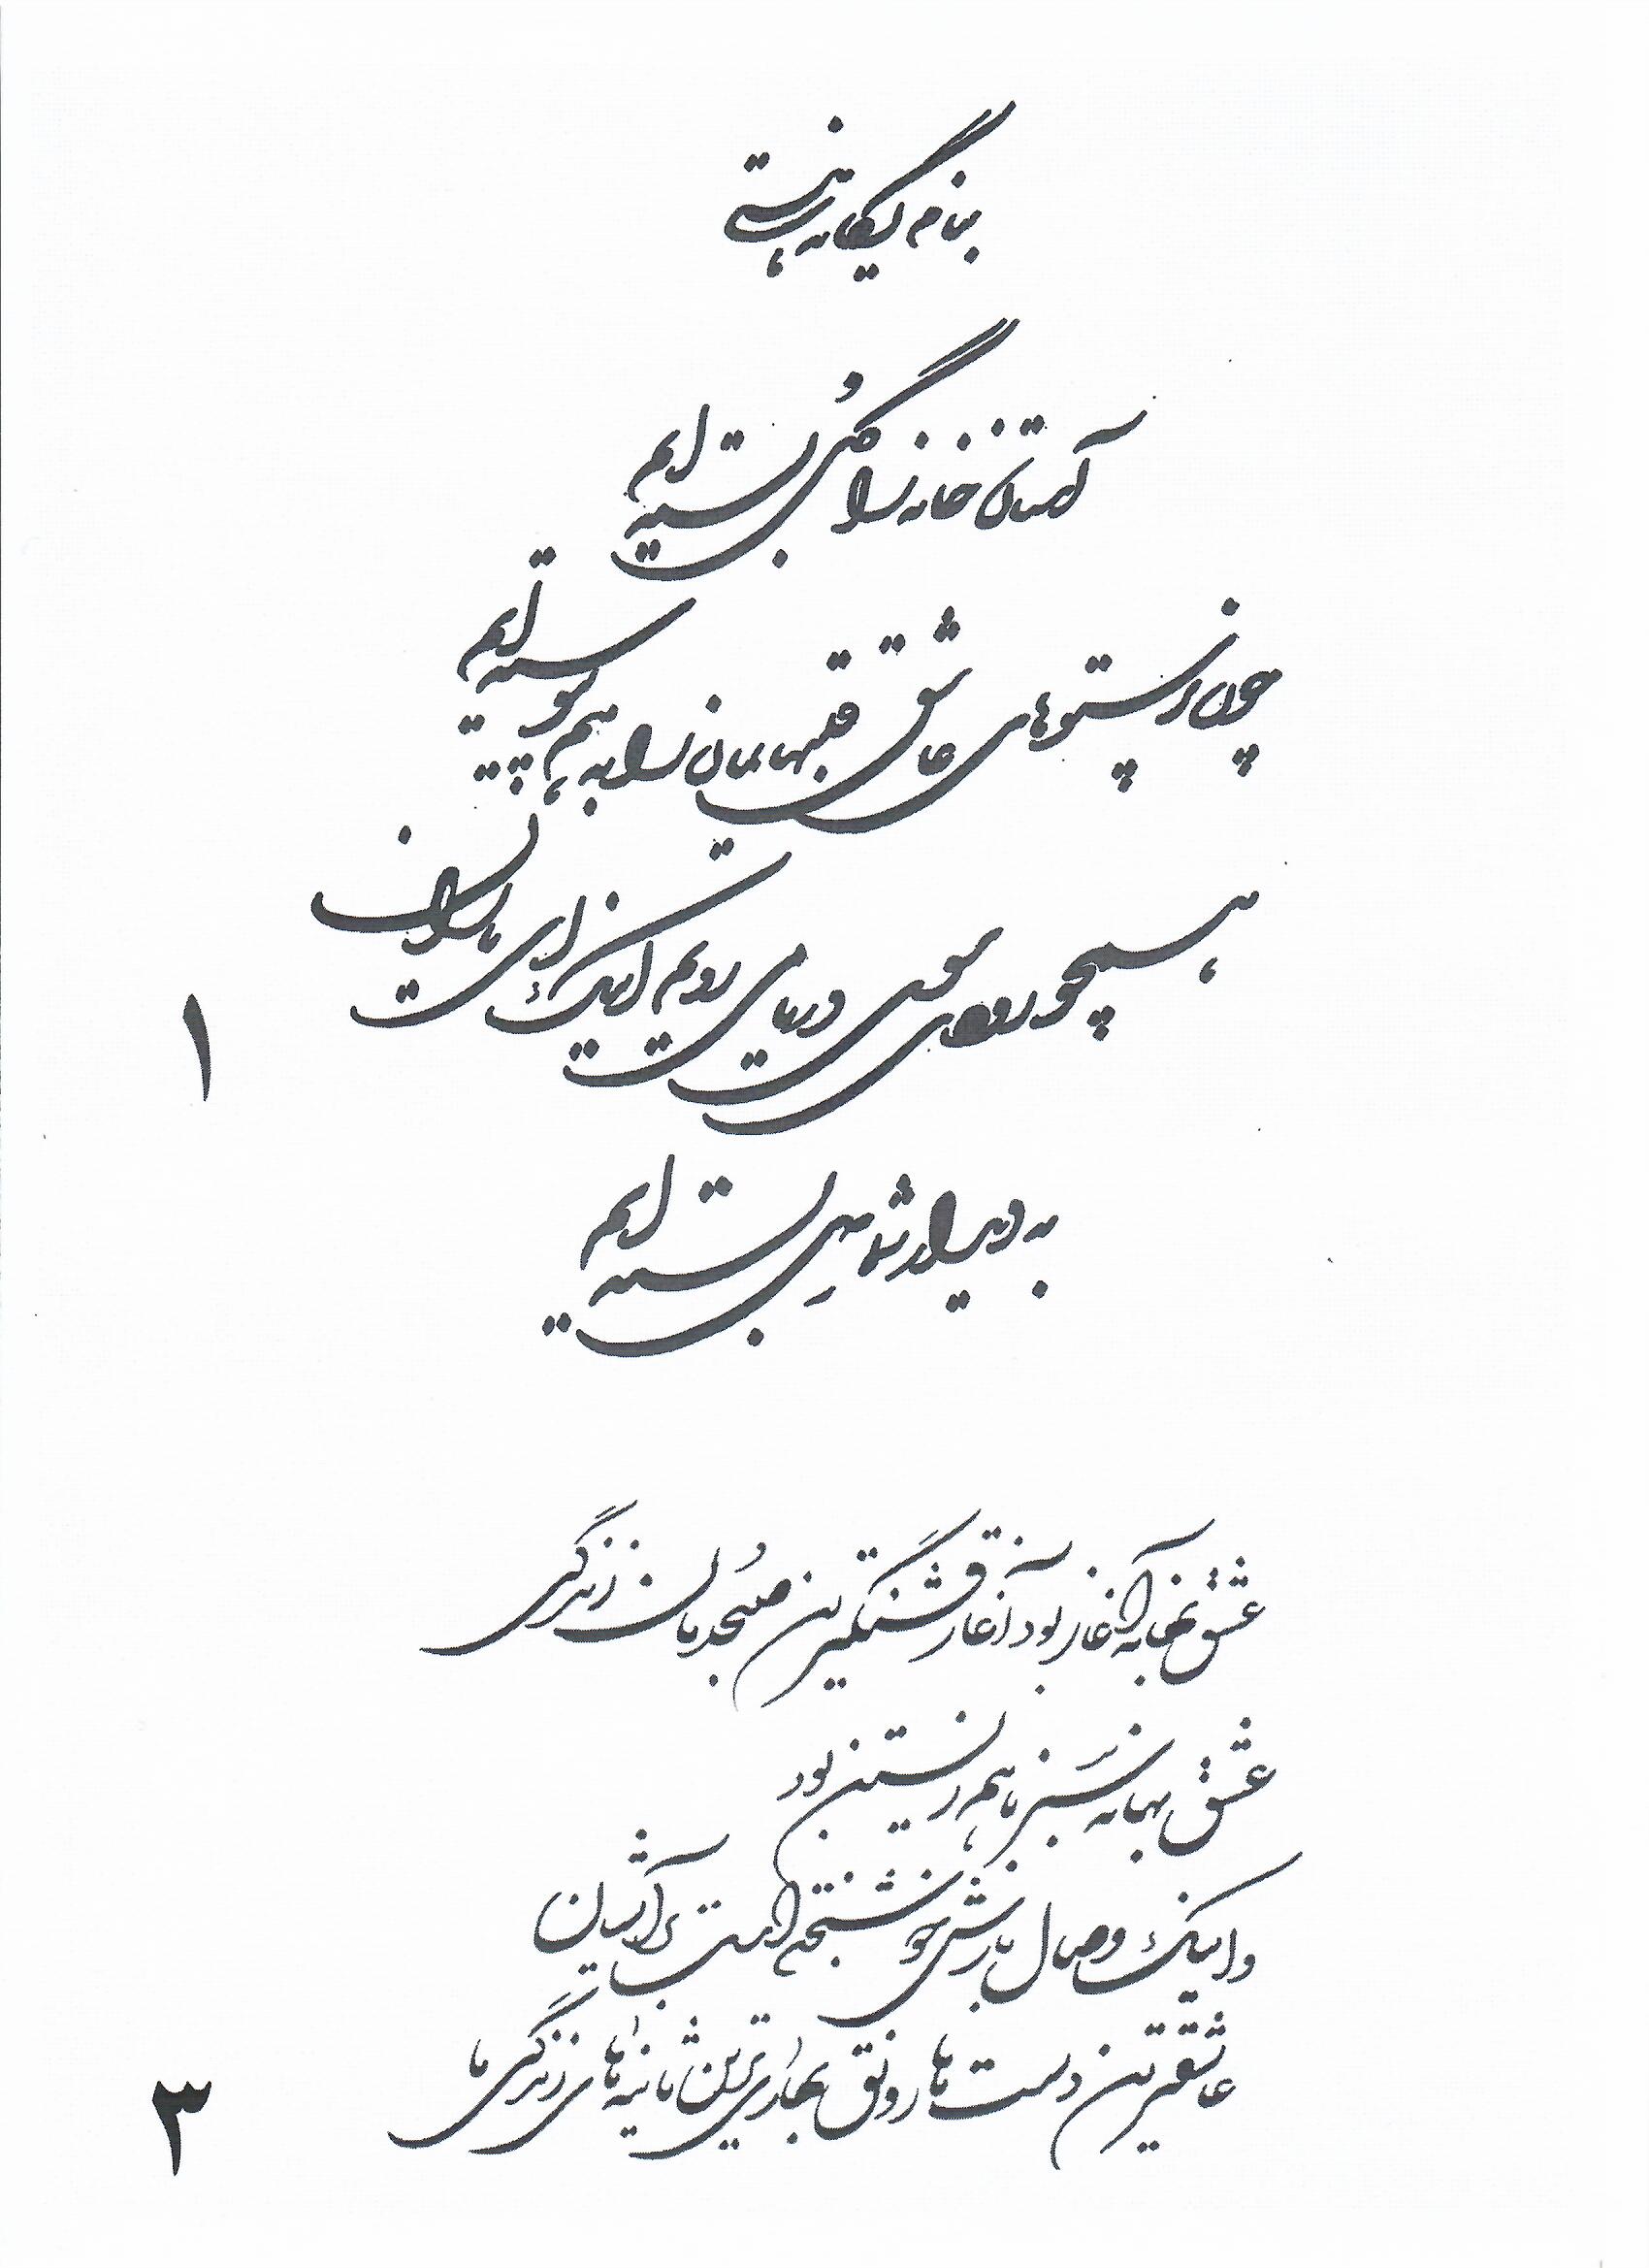 بنام یگانه هستی
آستان خانه را گلی بسته ایم
چون پرستوهای عاشق قلبهایمان را به هم پیوسته ایم
همچو رودی سوی دریا می رویم اینک ای یاران
به دیدار شما دل بسته ایم
۱
عشق تنها بهانه آغاز بود آغاز قشنگترین صبحدمان زندگی
عشق بهانه سبز با هم زیستن بود
و اینک وصال بارش خوشبختی است بر آستان
عاشقترین دست ها رونق بهاری ترین ثانیه های زندگی ما
۳